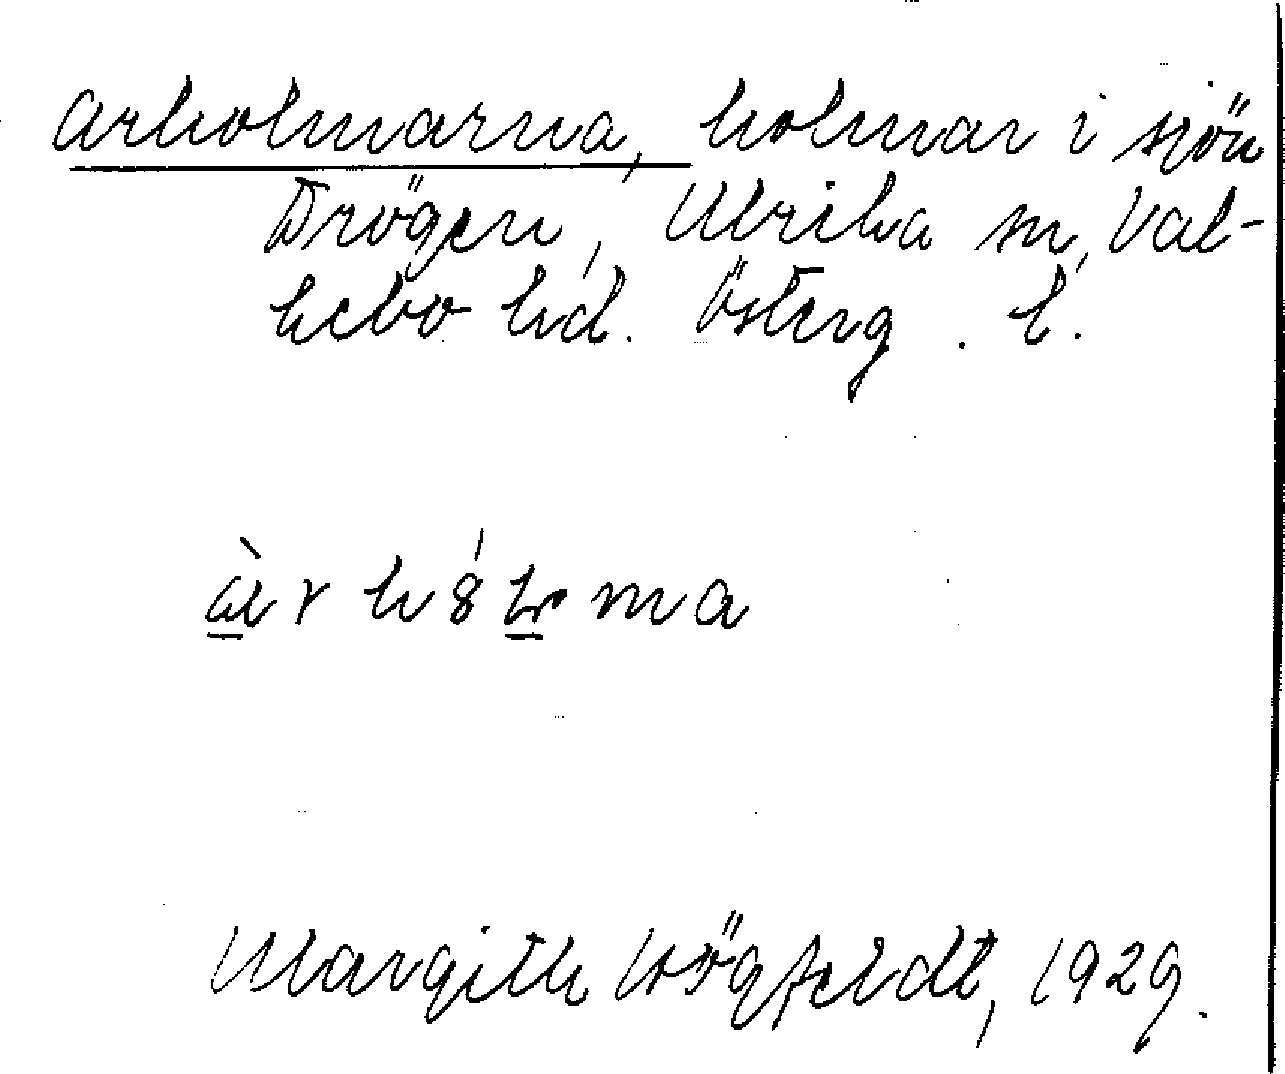 Arholmarna, holmar i sjön
Drögen, Ulrika sn, Val-
kebo hd. Österg. l.
Margith Högfeldt, 1929.